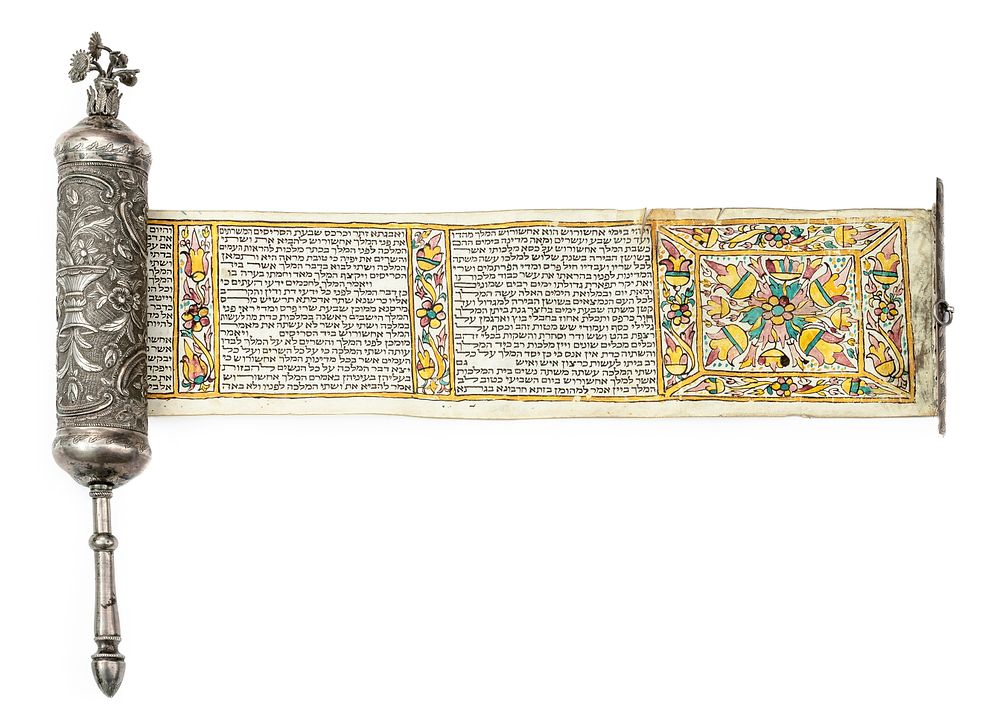 ויהי בימי אחשורוש הוא אחשורוש המלך מהדו
ועד כוש שבע ועשרים ומאה מדינה בימים ההם
כשבת המלך אחשורוש על כסא מלכותו אשר
בשושן הבירה בשנת שלוש למלכו עשה משתה
לכל שריו ועבדיו חיל פרס ומדי הפרתמים ושרי
המדינות לפניו בהראתו את עשר כבוד מלכותו
ואת יקר תפארת גדולתו ימים רבים שמונים
ומאת יום ובמלואת הימים האלה עשה המלך
לכל העם הנמצאים בשושן הבירה למגדול ועד
קטן משתה שבעת ימים בחצר גנת ביתן המלך
חור כרפס ותכלת אחוז בחבלי בוץ וארגמן על
גלילי כסף ועמודי שש מטות זהב וכסף על
רצפת בהט ושש ודר וסחרת והשקות בכלי זהב
וכלים מכלים שונים ויין מלכות רב כיד המלך
והשתיה כדת אין אנס כי כן יסד המלך על כל
רב ביתו לעשות כרצון איש ואיש גם
ושתי המלכה עשתה משתה נשים בית המלכות
אשר למלך אחשורוש ביום השביעי כטוב לב
המלך ביין אמר למהומן בזתא חרבונא בגתא
ואבגתא זתר וכרכס שבעת הסריסים המשרתים
את פני המלך אחשורוש להביא את ושתי
המלכה לפני המלך בכתר מלכות להראות העמים
והשרים את יפיה כי טובת מראה היא ותמאן
המלכה ושתי לבוא בדבר המלך אשר ביד
הסריסים ויקצף המלך מאד וחמתו בערה בו
ויאמר המלך לחכמים ידעי העתים כי
כן דבר המלך לפני כל ידעי דת ודין והקרב
אליו כרשנא שתר אדמתא תרשיש מרס
מרסנא ממוכן שבעת שרי פרס ומדי ראי פני
המלך הישבים ראשנה במלכות כדת מה לעשות
במלכה ושתי על אשר לא עשתה את מאמר
המלך אחשורוש ביד הסריסים ויאמר
מומכן לפני המלך והשרים לא על המלך לבדו
עותה ושתי המלכה כי על כל השרים ועל כל
העמים אשר בכל מדינות המלך אחשורוש כי
יצא דבר המלכה על כל הנשים להבזות
בעליהן בעיניהן באמרם המלך אחשורוש
אמר להביא את ושתי המלכה לפניו ולא באה